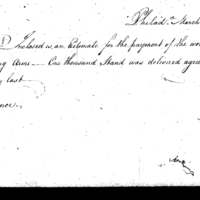 Philad.a March
Enclosed is an Estimate for the payment of the wor
ng Arms — One thousand Stand was delivered agre
y last
nce.